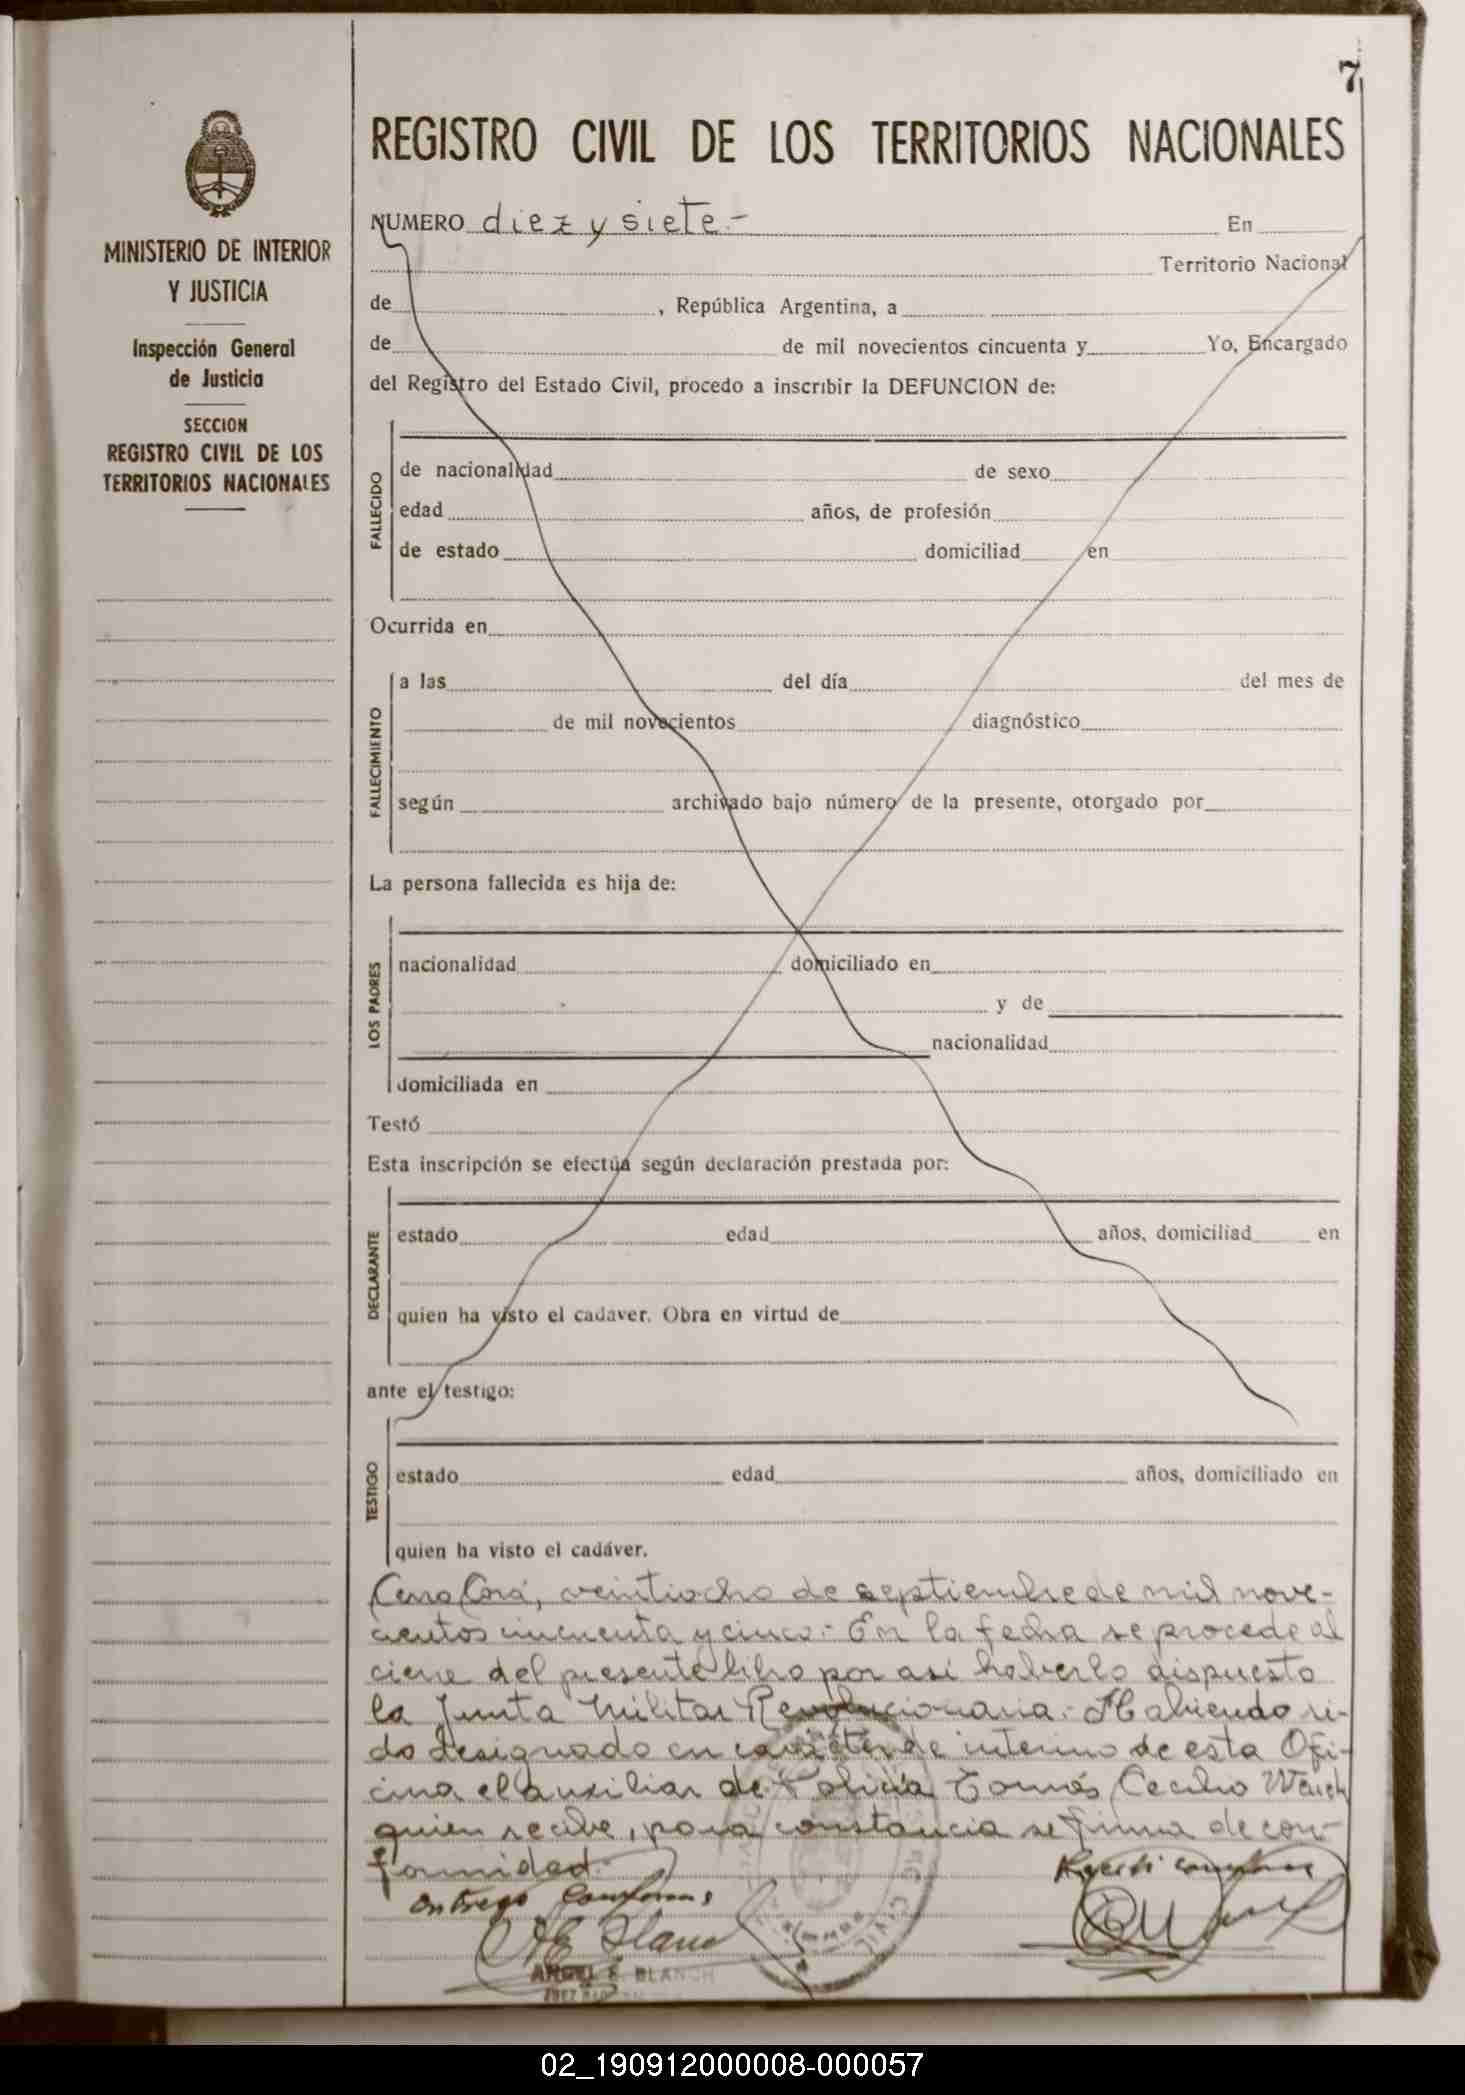 7
REGISTRO CIVIL DE LOS TERRITORIOS NACIONALES
MINISTERIO DE INTERIOR
Y JUSTICIA
Inspección General
de Justicia
SECCION
REGISTRO CIVIL DE LOS
TERRITORIOS NACIONALES
NUMERO diez y siete.- En
Territorio Nacional
de , República Argentina, a
de de mil novecientos cincuenta y Yo, Encargado
del Registro del Estado Civil, procedo a inscribir la DEFUNCION de:
FALLECIDO
de nacionalidad de sexo
edad años, de profesión
de estado domiciliad en
Ocurrida en
FALLECIMIENTO
a las del día del mes de
de mil novecientos diagnóstico
según archivado bajo número de la presente, otorgado por
La persona fallecida es hija de:
LOS PADRES
nacionalidad domiciliado en
y de
nacionalidad
domiciliada en
Testó
Esta inscripción se efectúa según declaración prestada por:
DECLARANTE
estado edad años, domiciliad en
quien ha visto el cadaver. Obra en virtud de
ante el testigo:
TESTIGO
estado edad años, domiciliado en
quien ha visto el cadáver.
Cerro Corá, veintiocho de septiembre de mil nove-
cientos cincuenta y cinco.- En la fecha se procede al
cierre del presente libro por asi haberlo dispuesto
la Junta Militar Revolucionaria.- Habiendo si-
do designado en carácter de interino de esta Ofi-
cina el auxiliar de Policía Tomás Cecilio
quien recibe, para constancia se firma de con-
formidad.-
Entrego conforme Recibi conforme
ANGEL E. BLANCH
02_190912000008-000057